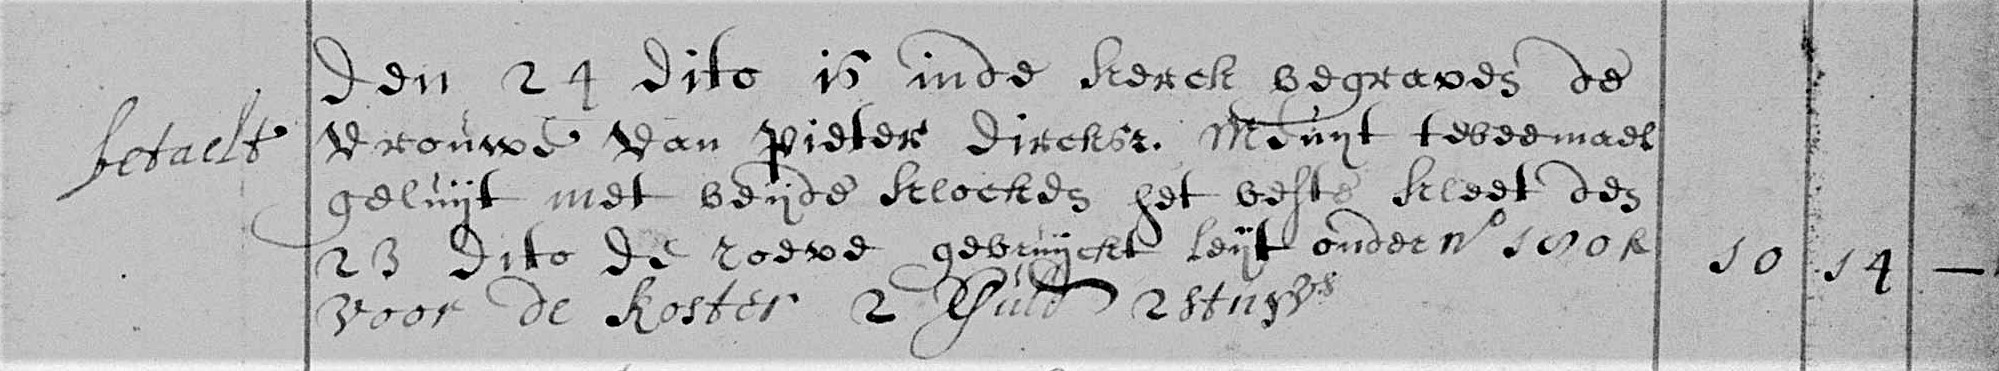 Den 24 dito is inde kerck begraven de
betaelt vrouwe van pieter Dircksz. Meuijt tweemael
geluijt met beijde klocken het beste kleet den
23 dito de roeve gebruijckt leijt onder no 180 10 14 —
voor de koster 2 Guld 2 stuyvs